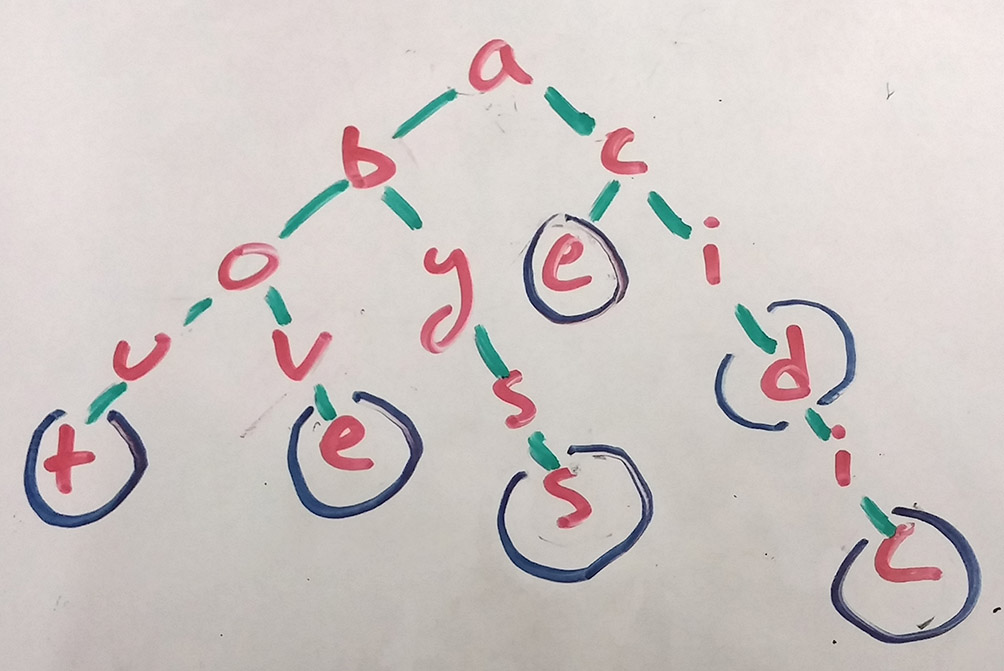 a
b c
o y e i
u v s d
t e s i
c